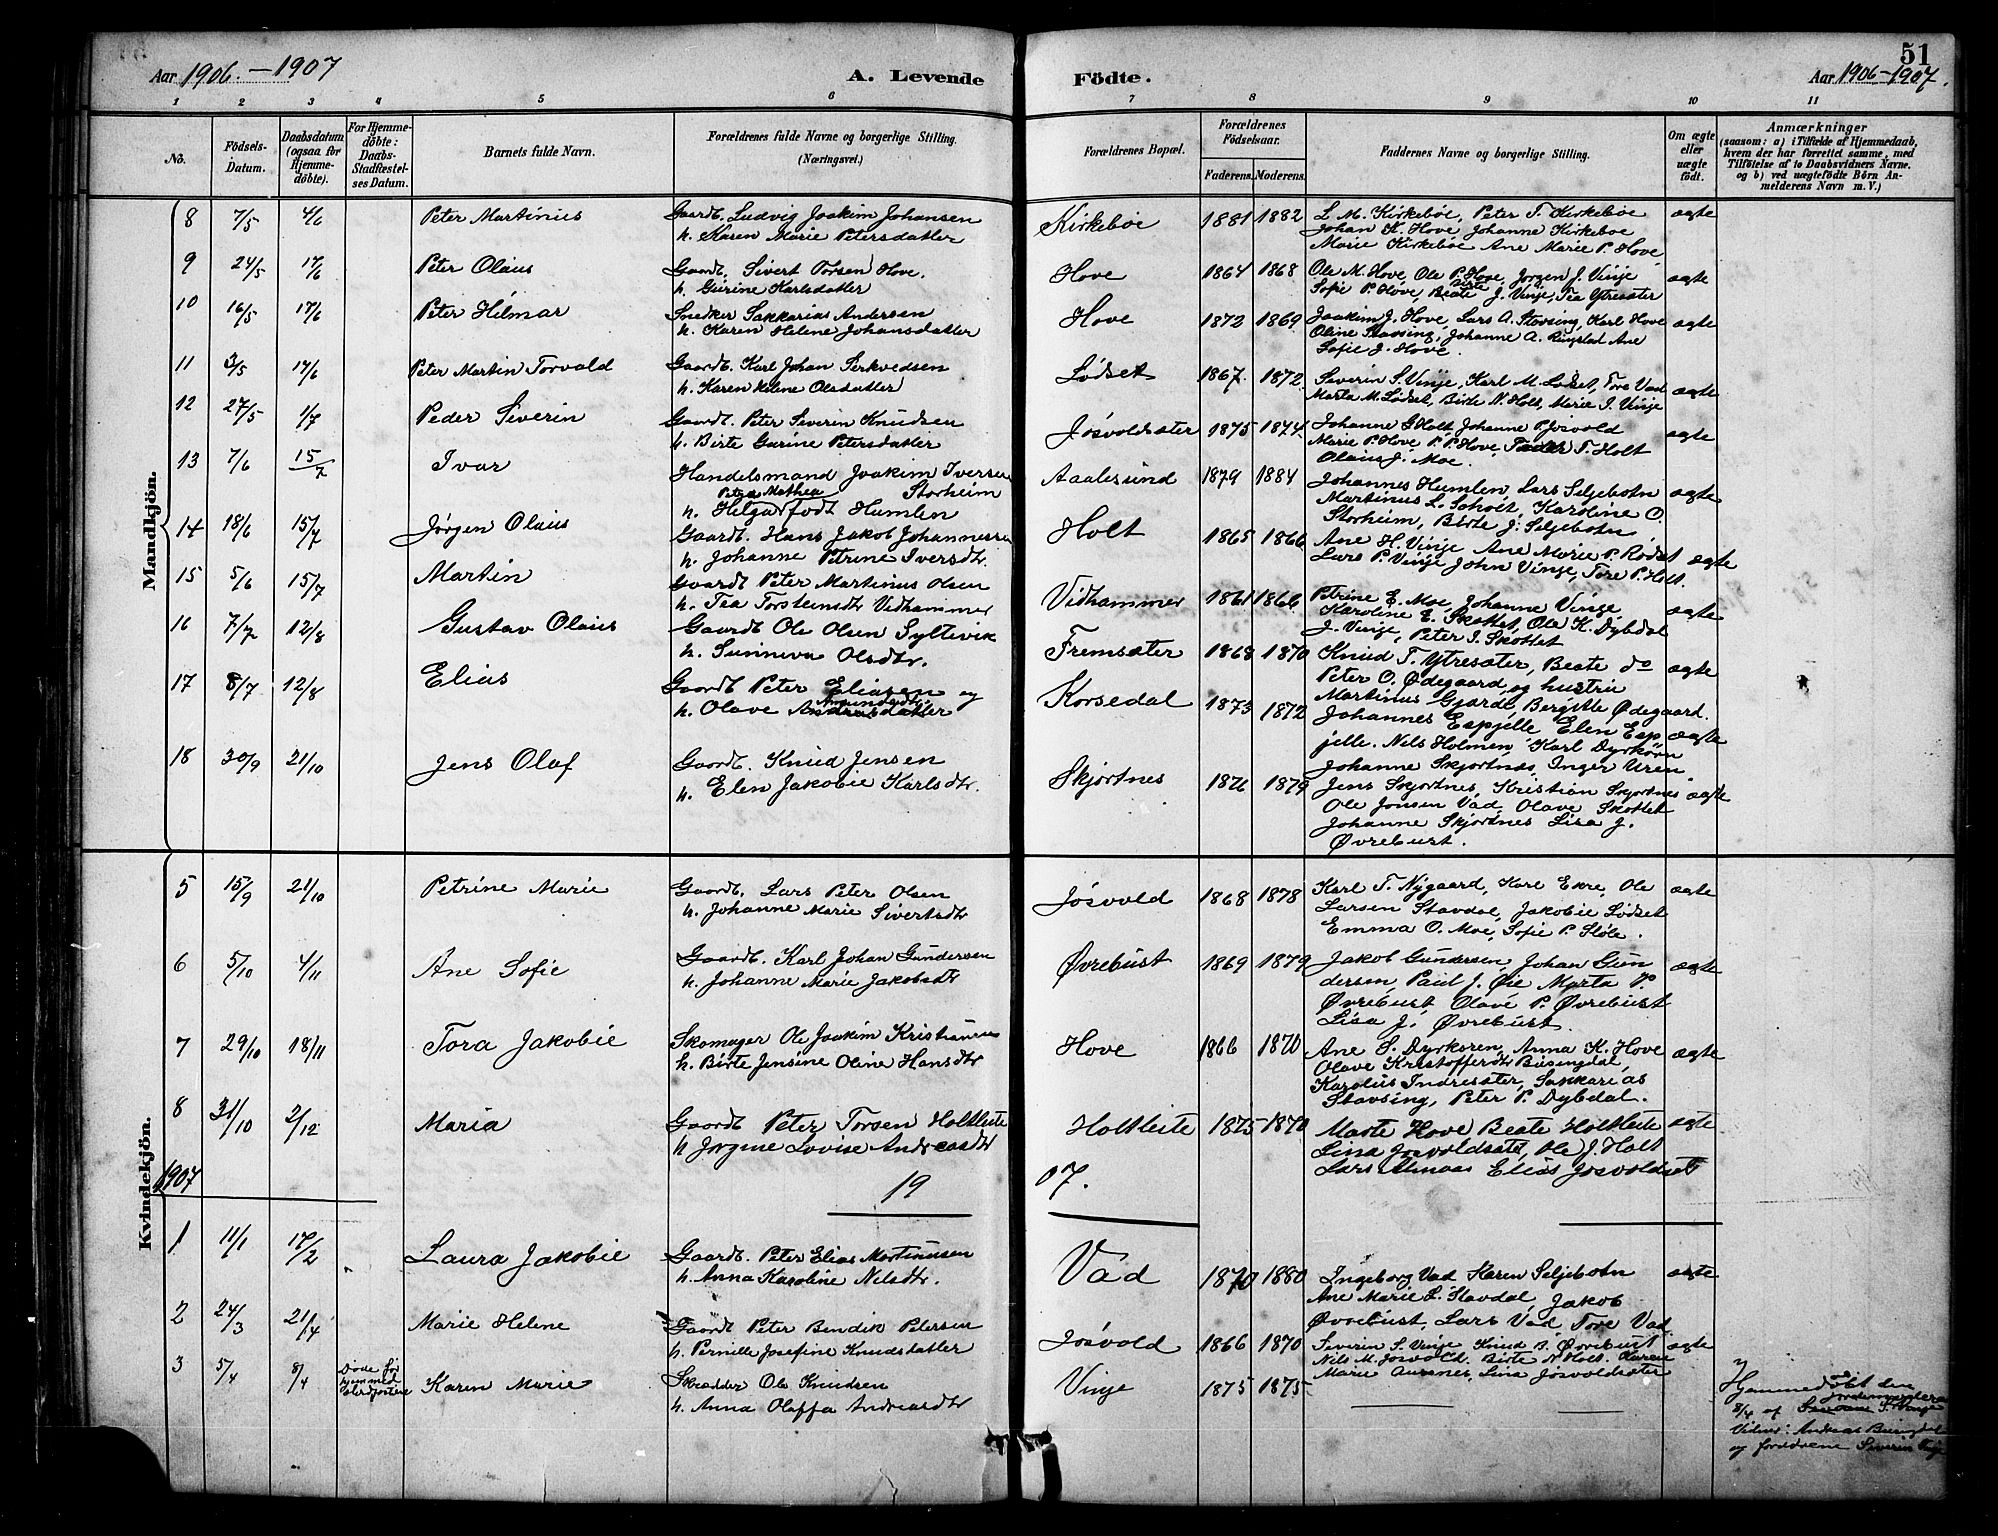 51
Aar 1906.-1907
A. Levende
Födte.
Aar 1906-1907.
1 2 3 4 5 6 7 8 9 10 11
No.
Födsels-
Datum.
Daabsdatum
(ogsaa for
Hjemme-
döbte).
For Hjemme-
döbte:
Daabs-
Stadfæstel-
ses Datum.
Barnets fulde Navn.
Forældrenes fulde Navne og borgerlige Stilling.
(Næringsvei.)
Forældrenes Bopæl.
Forældrenes
Födselsaar.
Faderens. Moderens.
Faddernes Navne og borgerlige Stilling.
Om ægte
eller
uægte
födt.
Anmærkninger
(saasom: a) i Tilfælde af Hjemmedaab,
hvem der har forrettet samme, med
Tilföielse af to Daabsvidners Navne.
og b) ved uægtefödte Börn An-
melderens Navn m. V.)
Mandkjön.
8 7/5 4/6 Peter Martinius Gaardb. Ludvig Joakim Johansen Kirkebøe 1881 1882 L. M. Kirkebøe, Peter T. Kirkebøe ægte
h. Karen Marie Petersdatter Johan K. Hove Johanne Kirkebøe
Marie Kirkebøe Ane Marie P. Hove
9 24/5 17/6 Peter Olaus Gaardb. Sivert Torsen Hove. Hove 1864 1868 Ole M. Hove, Ole P. Hove, Jørgen J. Vinje ægte
h. Gurine Karlsdatter Sofie P. Hove, Beate J. Vinje, Tea Ytresæter
10 16/5 17/6 Peter Hilmar Snedker Sakkarias Andersen Hove 1872 1869 Joakim J. Hove, Lars A. Stavsing, Karl Hove ægte
h. Karen Helene Johansdatter Oline Stavsing, Johanne A. Ringstad Ane
Sofie J. Hove.
11 3/5 17/6 Peter Martin Torvald Gaardb. Karl Johan Serkvedsen Lødset 1867. 1872. Severin S. Vinje, Karl M. Lødset, Tore Vad ægte
h. Karen Helene Olsdatter Marta M. Lødset, Birte N. Holt, Marie J. Vinje
12 27/5 1/7 Peder Severin Gaardb. Peter Severin Knudsen Jøsvoldsæter 1875 1874 Johanne G Holt Johanne P. Jøsvold ægte
h. Birte Gurine Petersdatter Marie P. Hove P. P. Hove T. Holt
Olaus J. Moe.
13 7/6 15/7 Ivar Handelsmand Joakim Iversen Aalesund 1879 1884 Johannes Humlen, Lars Seljebotn ægte
Petra Mathea Storheim Martinus L. Karoline O.
h. Helga født Humlen Storheim, Birte J. Seljebotn
14 18/6 15/7 Jørgen Olaus Gaardb. Hans Jakob Johannessen Holt 1865 1866 Ane H. Vinje Ane Marie P. Rødset ægte
h. Johanne Petrine Iversdtr Lars P. Vinje John Vinje, Tore P. Holt.
15 5/6 15/7 Martin Gaardb Peter Martinius Olsen Vidhammer 1861 1866 Petrine E. Moe, Johanne Vinje ægte
h. Tea Torsteinsdtr Vidhammer Karoline E. Skottet, Ole K. Dybdal
J. Vinje, Peter J. Skottet
16 7/7 12/8 Gustav Olaus Gaardb Ole Olsen Syltevik Fremsæter 1868 1870 Knud T. Ytresæter, Beate do ægte
h. Sunneva Olsdtr. Peter O. Ødegaard og hustru
17 8/7 12/8 Elias Gaardb Peter Eliasen og Korsedal 1873 1872 Martinus Gjærde Bergitte Ødegaard.
h. Olave Johannes Espjelle Elen Esp ægte
jelle. Nils Holmen Karl Dyrkorn
18 30/9 21/10 Jens Olaf Gaardb. Knud Jensen Skjortnes 1876 1879 Johanne Skjortnes, Inger Uren.
h. Elen Jakobie Karlsdtr. Jens Skjortnes, Kristian Skjortnes ægte
Ole Jonsen Vad, Olave Skottet
Johanne Skjortnes Lisa J.
Øvrebust.
Kvindekjön.
5 15/9 21/10 Petrine Marie Gaardb. Lars Peter Olsen Jøsvold 1868 1878 Karl T. Nygaard, Karl Ekre, Ole ægte
h. Johanne Marie Sivertsdtr Larsen Stavdal, Jakobie Lødset
Emma O. Moe, Sofie P. Støle.
6 5/10 4/11 Ane Sofie Gaardb. Karl Johan Gundersen Øvrebust 1869 1879 Jakob Gundersen, Johan Gun ægte
h. Johanne Marie Jakobsdtr dersen, Paul J. Øie Marta P.
Øvrebust Olave P. Øvrebust
Lisa J. Øvrebust.
7 29/10 18/11 Tora Jakobie Skomager Ole Joakim Kristiansen Hove 1866 1870 Ane S. Dyrkoren, Anna K. Hove ægte
h. Birte Jensine Oline Hansdtr Olave Kristoffersdtr Busingdal,
Karolus Indresæter, Sakkarias
Stavsing, Peter P. Dybdal.
8 31/10 2/12 Maria Gaardb Peter Torsen Holtleite Holtleite 1875 1870 Marte Hove Beate Holtleite ægte
h Jørgine Lovise Andreasdtr Lina Jøsvoldsæt, Ole J. Holt
Lars Almaas Elias Jøsvoldset
1907 19 07.
1 11/1 17/2 Laura Jakobie Gaardb. Peter Elias Martinusen Vad 1870 1880 Ingeborg Vad Karen Seljebotn ægte
h. Anna Karoline Nilsdtr. Ane Marie L. Stavdal, Jakob
Øvrebust, Lars Vad Tore Vad.
2 24/3 21/4 Marie Helene Gaardb Peter Bendik Petersen Jøsvold 1866 1870 Severin S. Vinje Knud B. Øvrebust ægte
h. Pernille Josefine Knudsdatter Nils M. Jøsvold. Birte N Holt.
Marie Aursnes, Lina Jøsvoldsæter
3 5/4 8/4 Døde før Karen Marie Skrædder Ole Knudsen Vinje 1875 1875
h. Anna Olaffa Andreasdtr
Hjemmedøbt den
8/4 af jordemoder
Vidner: Andreas Busingdal
og forældrene Severin Vinje